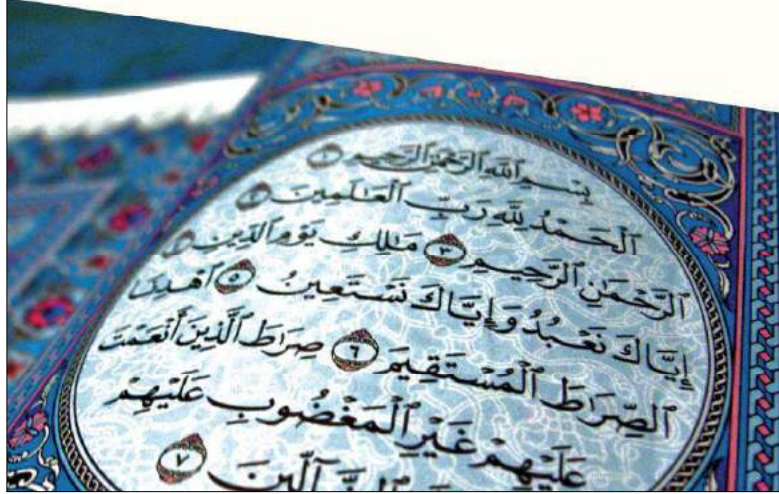 بِسْمِ ٱللَّهِ ٱلرَّحْمَٰنِ ٱلرَّحِيمِ ١
ٱلْحَمْدُ لِلَّهِ رَبِّ ٱلْعَٰلَمِينَ ٢
ٱلرَّحْمَٰنِ ٱلرَّحِيمِ ٣ مَٰلِكِ يَوْمِ ٱلدِّينِ ٤
إِيَّاكَ نَعْبُدُ وَإِيَّاكَ نَسْتَعِينُ ٥ ٱهْدِنَا
ٱلصِّرَٰطَ ٱلْمُسْتَقِيمَ ٦ صِرَٰطَ ٱلَّذِينَ أَنْعَمْتَ
عَلَيْهِمْ غَيْرِ ٱلْمَغْضُوبِ عَلَيْهِمْ
ٱلضَّآلِّينَ ٧